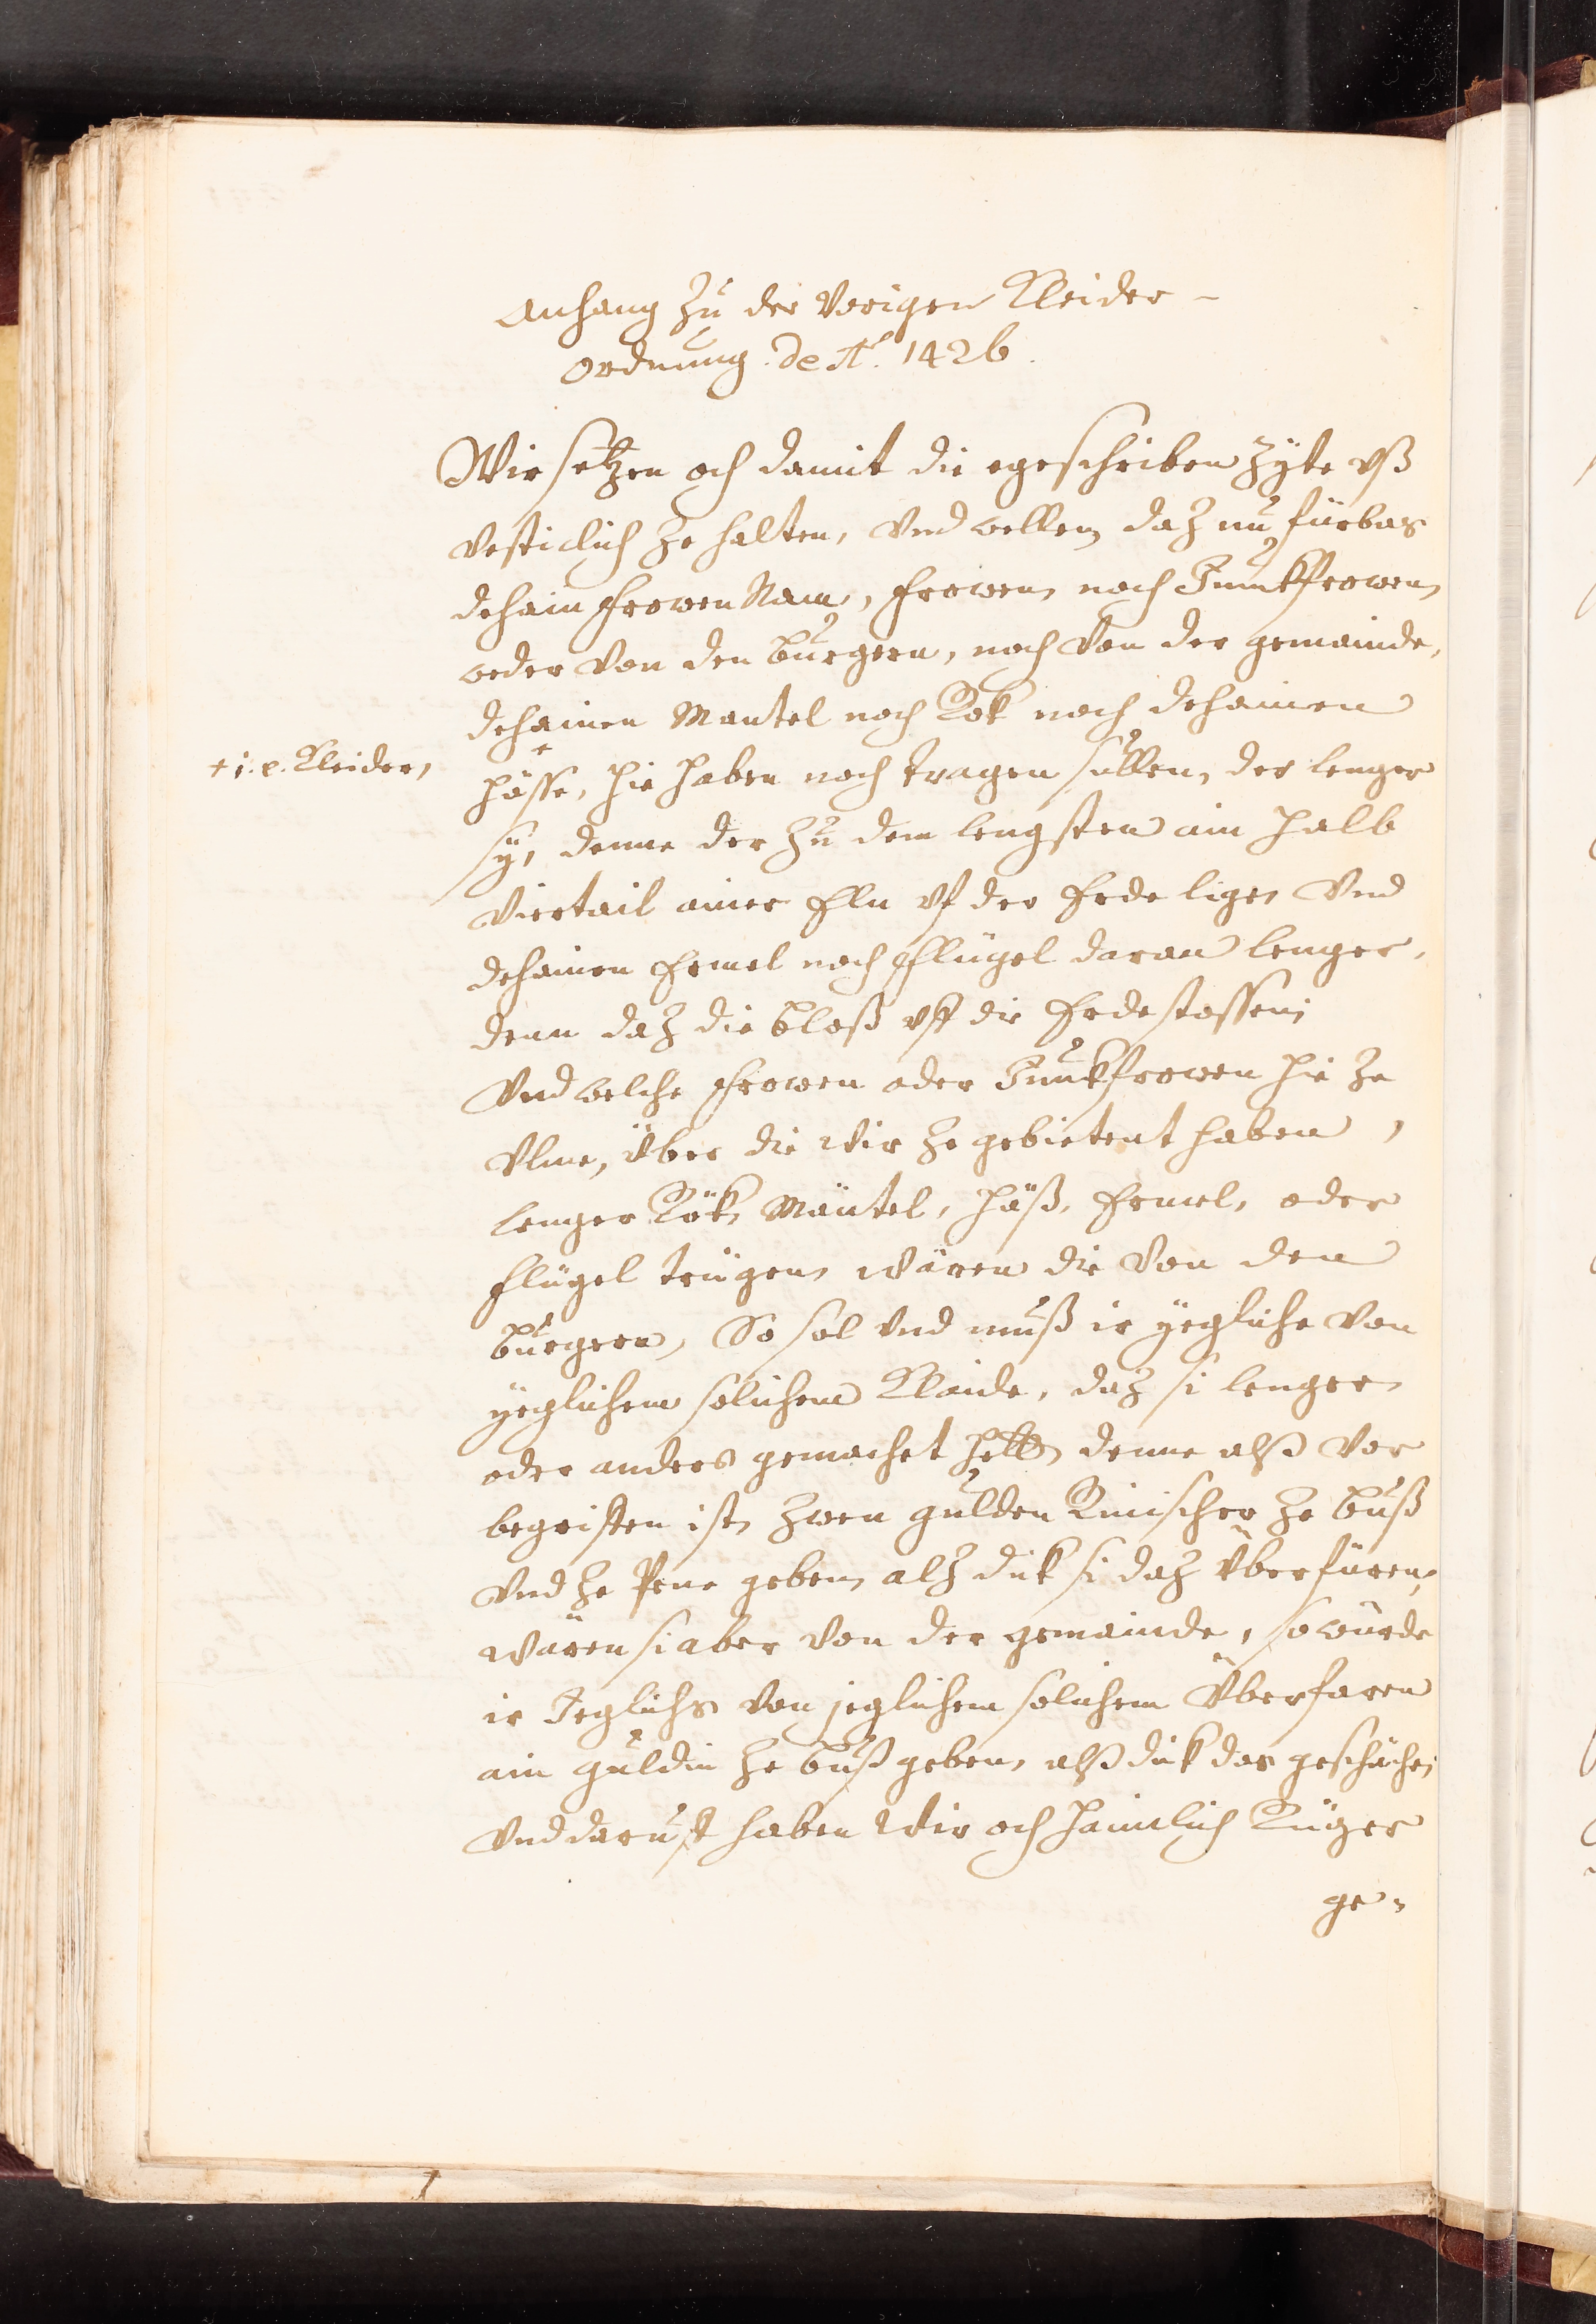 Anhang zu der vorigen Kleider-
ordnung. de Ao. 1426.
Wir setzen och damit die egeschriben zyte vß
vesticlich ze halten, vnd wellen daz nu fürbas
dehain frowen Nam, frowen noch Junckfrowen
weder von den burgern, noch von der gemainde,
dehainen Mantel noch Rok noch dehainen
+ i. e. Kleider,
häsße, hie haben noch tragen süllen, der lenger
sÿ, denne der zu dem lengsten ain halb
viertail ainer Eln vf der Erde lige, vnd
dehainen Ermel noch Flügel daran lenger,
denn daz die bloß vff die Erde stossen;
Vnd welche frowen oder Junckfrowen hie ze
Vlme, über die wir ze gebietent haben,
lenger Rök, Mäntel, häß, Ermel, oder
flügel trügen, wären die von den
burgern, So sol vnd muß ir yegliche von
yeglichem solichem Klaide, daz si lenger
oder anders gemachet hette, denne alß vor
begriffen ist, zwen gulden Rinischer ze buß
vnd ze Pene geben, alz dik si daz überfüren,
wären si aber von der gemainde, so würde
ir Jeglichs von jeglichem solichem überfaren
ain guldin ze buß geben, alß dik das geschäche,
vnd daruf haben wir och haimlich Rüger
ge-